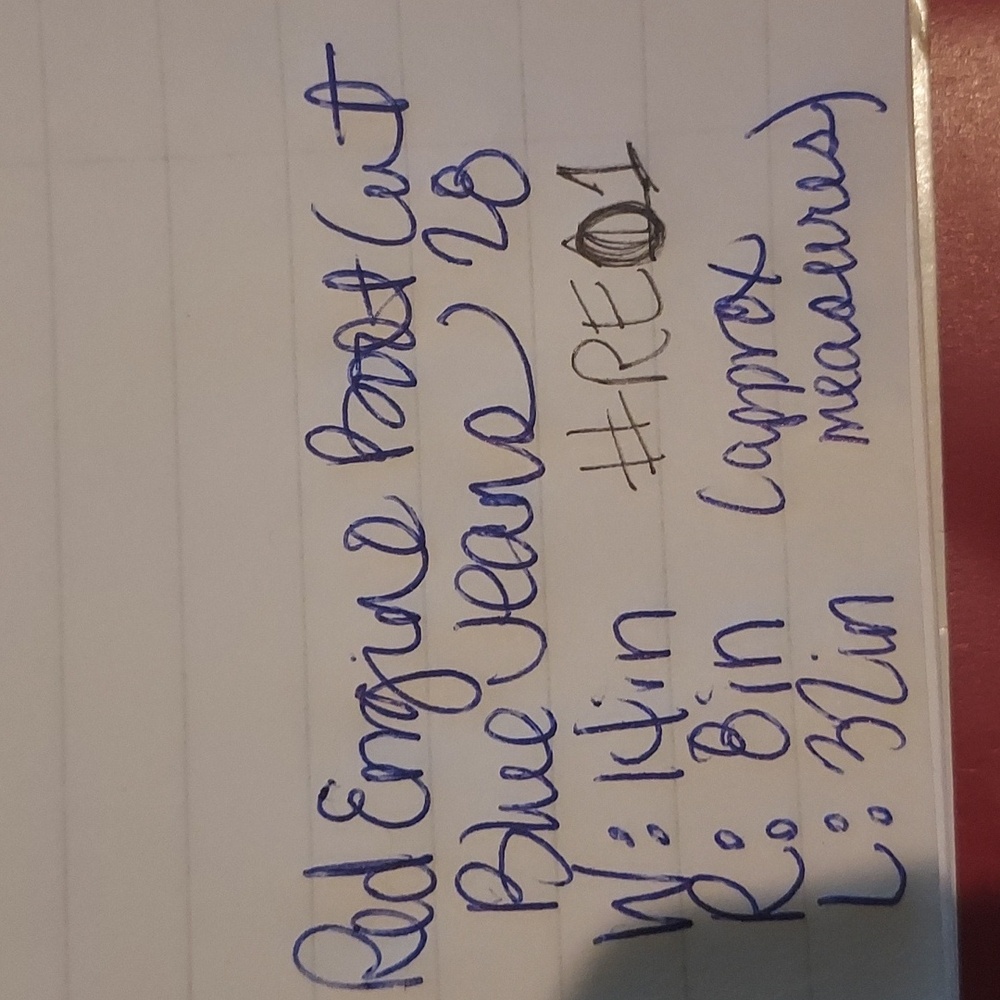 Red Engine Boot Cut
Blue Jeans 28
W: 14in #RE01
R: 8in (approx
L: 32in measures)